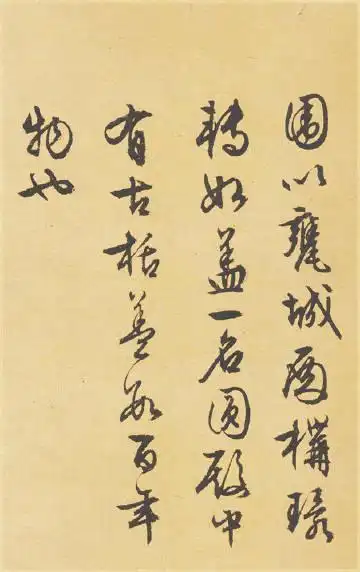 圍以甕城構環
轉如蓋一名圓殿中
有古栝蓋數百年
物也